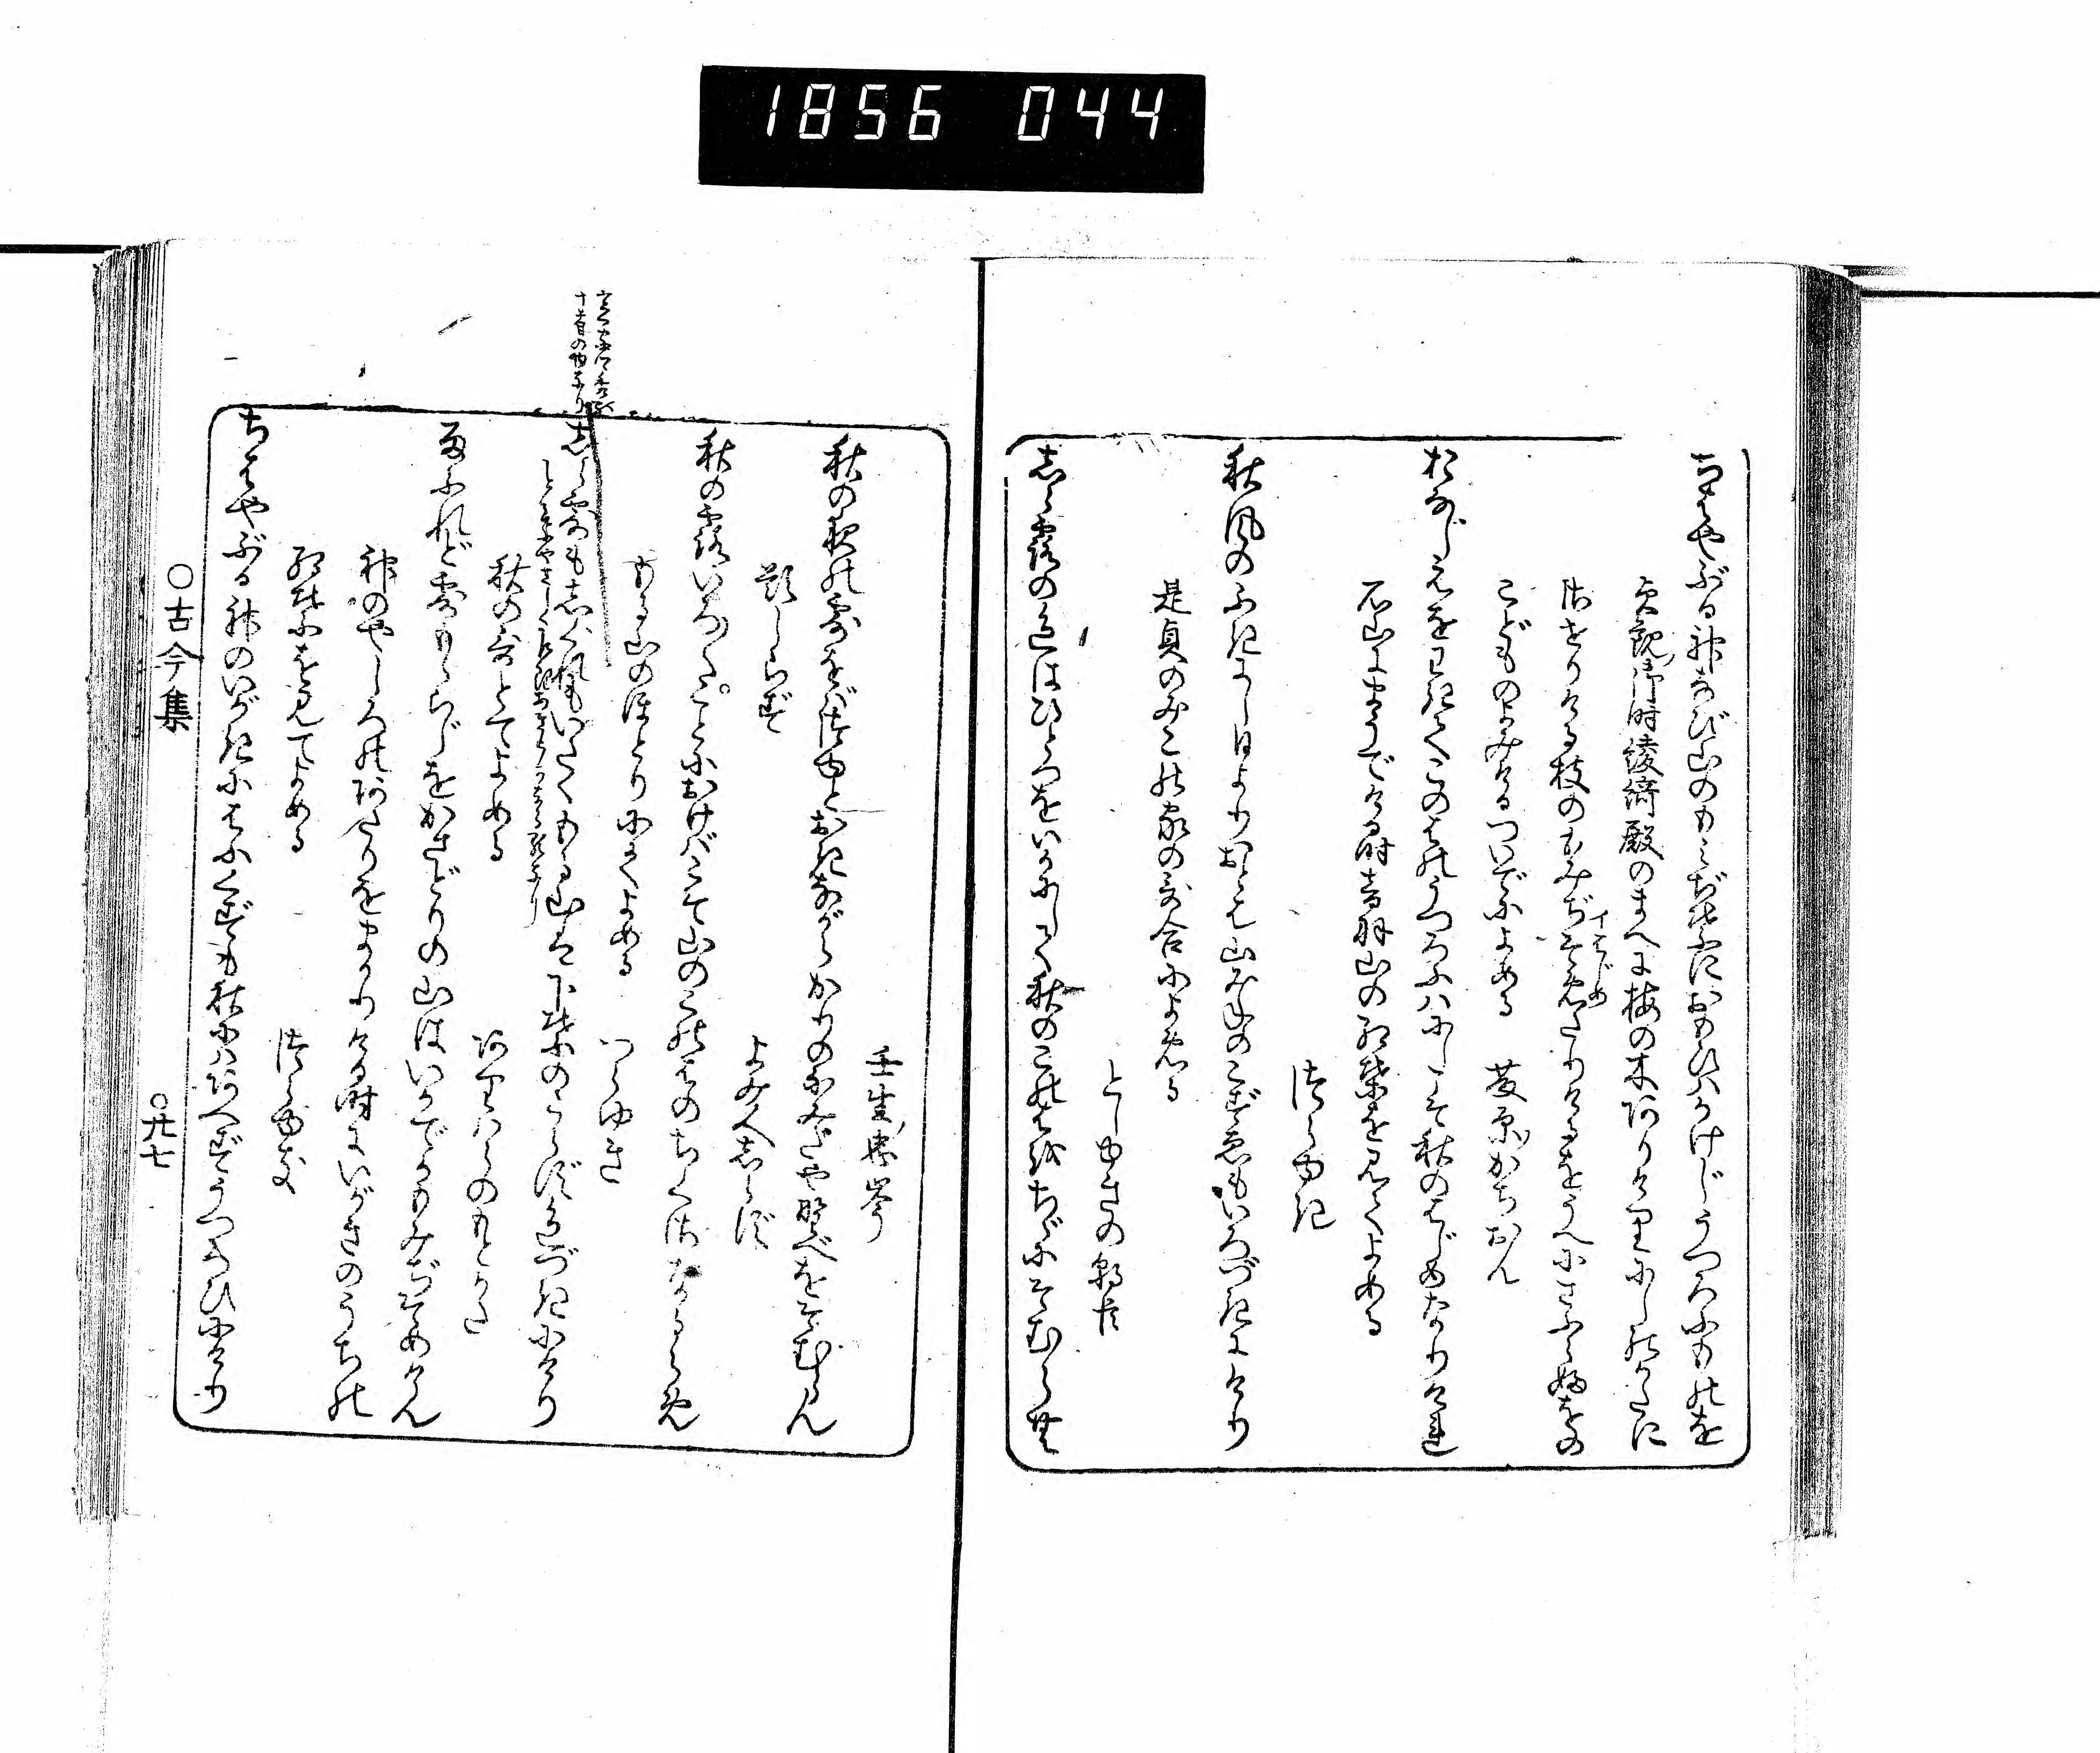 1856 044
ちはやぶる神なび山のもみぢばにおもひはかけじうつろふものを
貞観御時綾綺殿のまへに梅の木ありけりにしのかたに
させりける枝のもみぢそめたりけるをうへにさふらふをの
イはじめ
こどものよみけるついでによめる　藤原かちおん
おなじえをわきてこのはのうつろふハにしこそ秋のはじめなりけれ
石山にまうでける時音羽山の紅葉を見てよめる
つらゆき
秋風のふきにし日よりおとは山みねのこずゑもいろづきにけり
是貞のみこの家の哥合によめる
としゆきの朝臣
しら露の色はひとつをいかにして秋のこのはをちぢにそむらむ
壬生忠岑
秋の夜の露をば露とおきながらかりのなみだや野べをそむらん
題しらず
よみ人しらず
秋の露いろ〳〵ことにおけばこそ山のこのはのちくさなるらめ
もる山のほとりにてよめる　つらゆき
十首の内なり
しら露もしぐれもいたくもる山は下葉のこらず色づきにけり
秋の哥とてよめる　在原のもとかた
雨ふれど露もらじをかさとりの山はいかでかもみぢそめけん
神のやしろのあたりをまかりける時にいがきのうちの
紅葉を見てよめる　つらゆき
ちはやぶる神のいがきにはふくずも秋にハあへずうつろひにけり
○古今集　○廿七